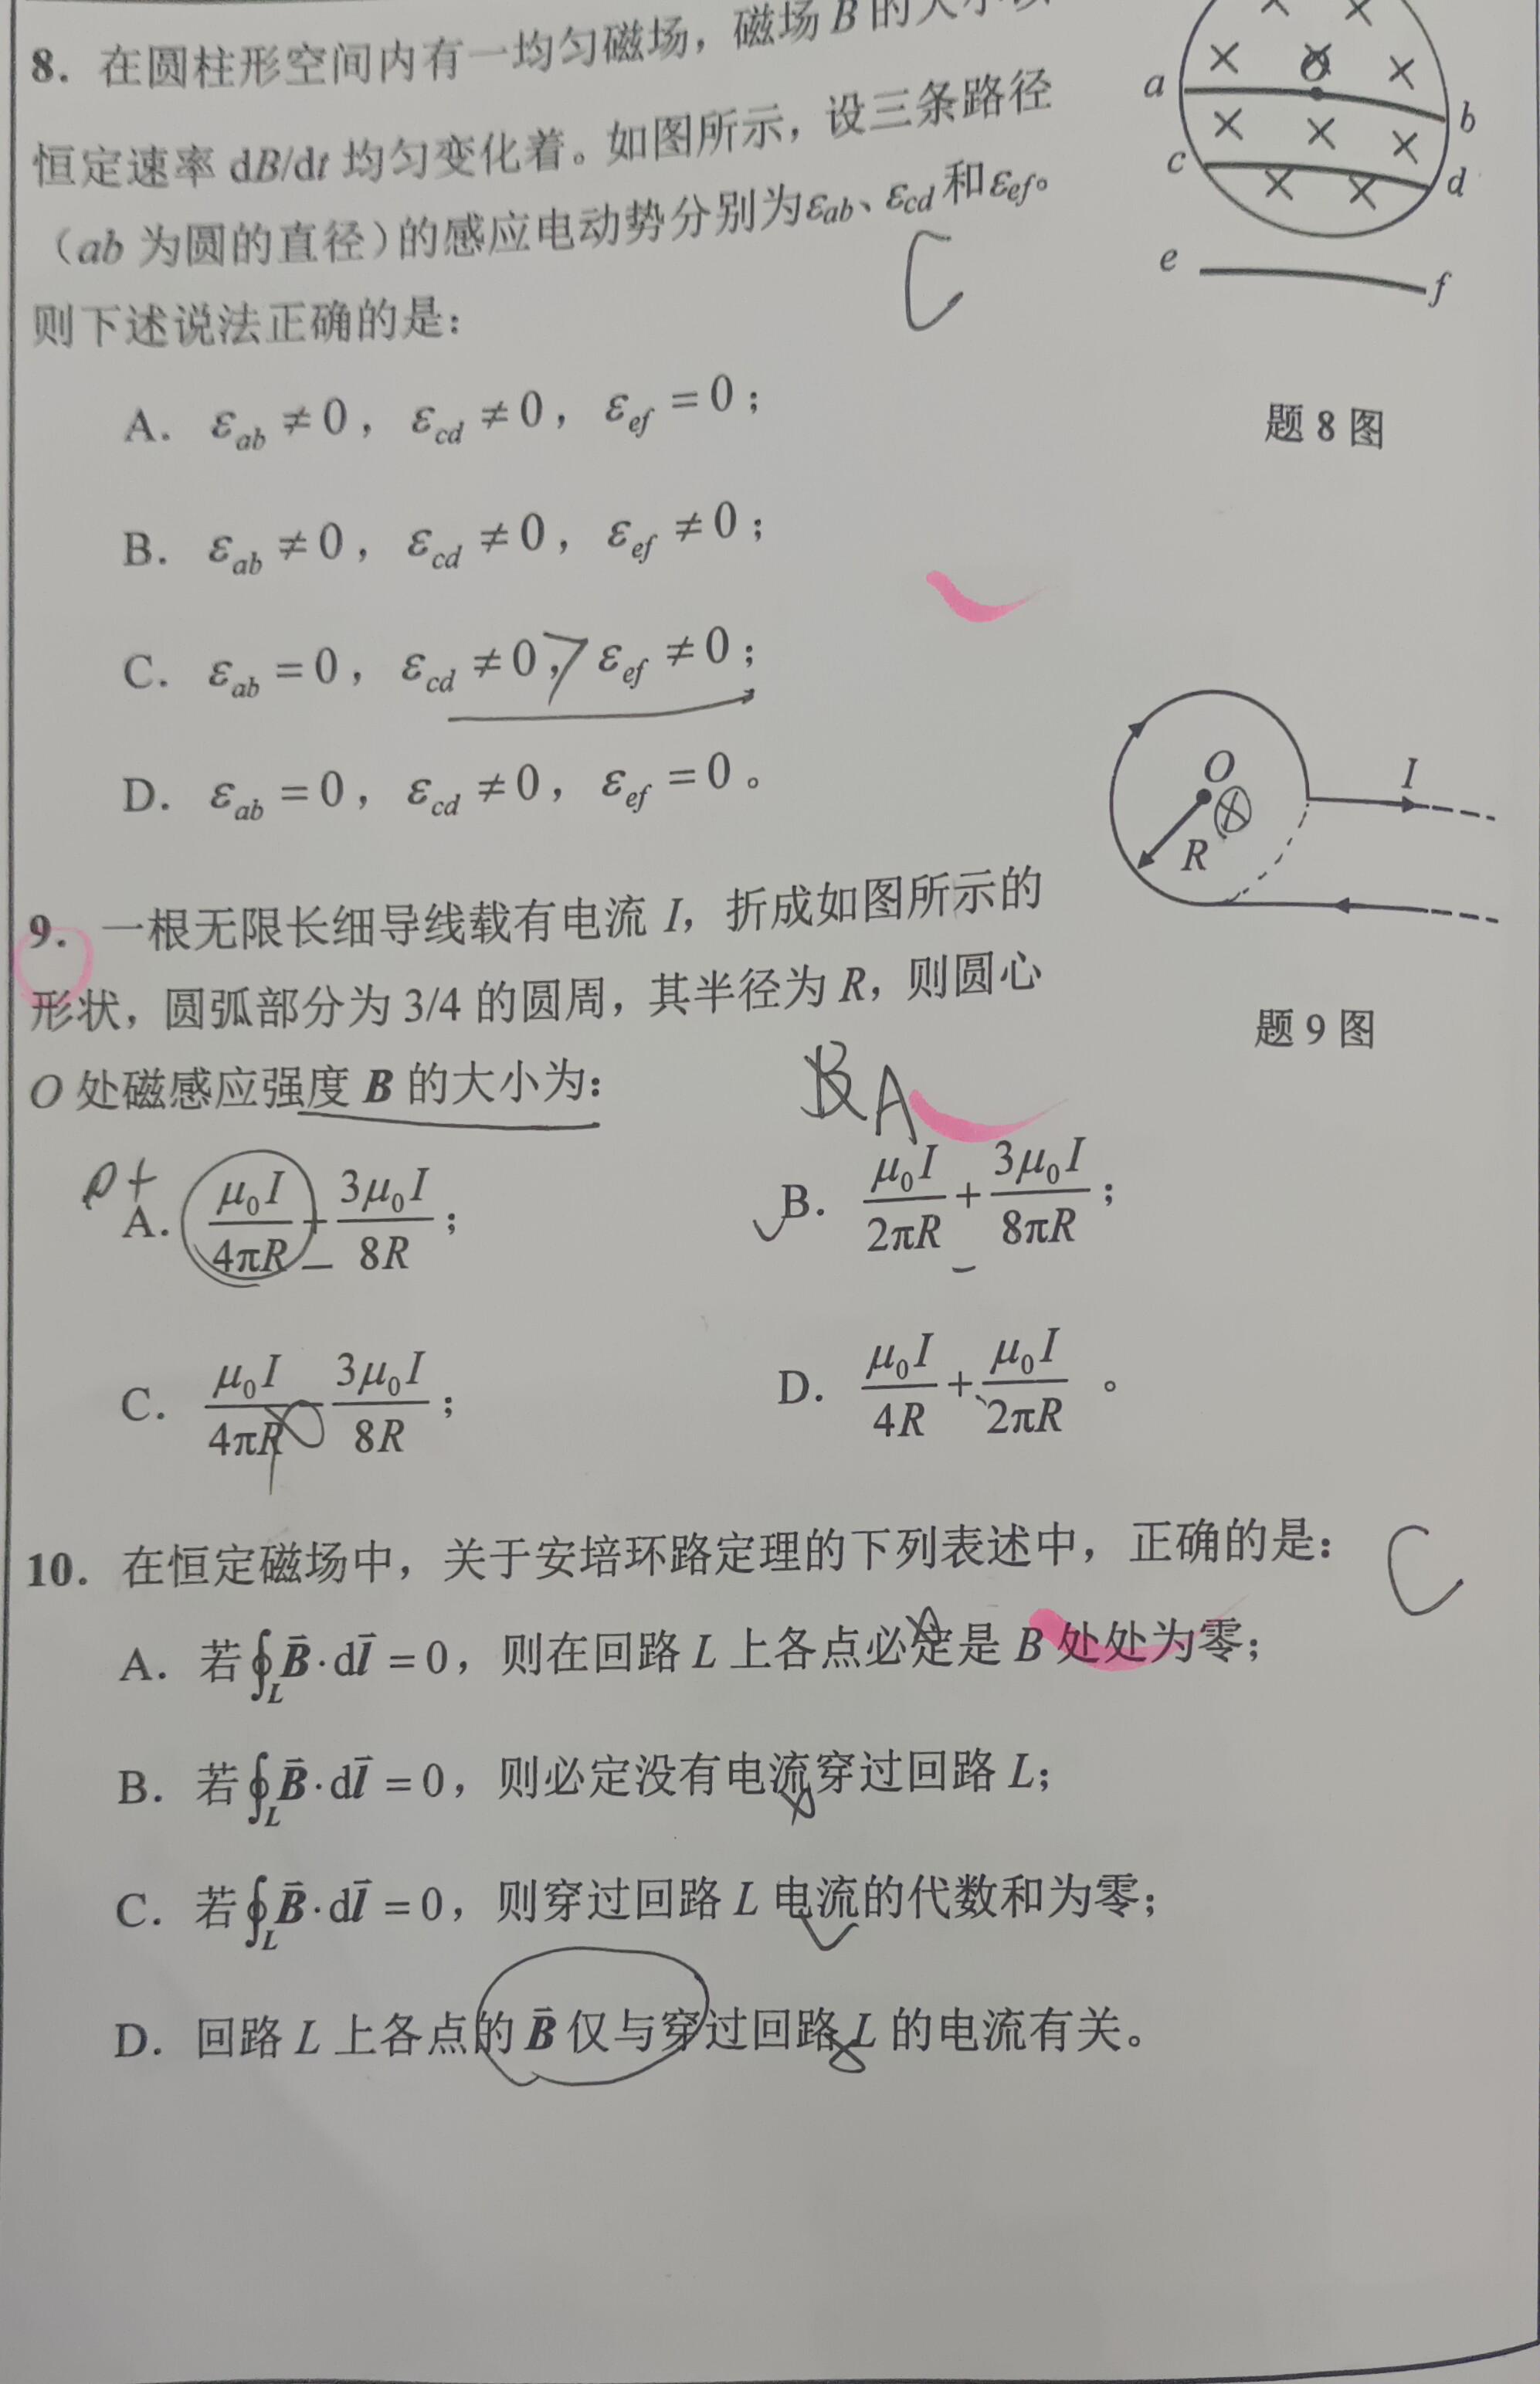 8. 在圆柱形空间内有一均匀磁场，磁场 B 的大小以
恒定速率 dB/dt 均匀变化着。如图所示，设三条路径
（ab 为圆的直径）的感应电动势分别为εab、εcd 和εef。
则下述说法正确的是：
C
a O b
c d
e f
A. εab ≠ 0，εcd ≠ 0，εef = 0；
题 8 图
B. εab ≠ 0，εcd ≠ 0，εef ≠ 0；
C. εab = 0，εcd ≠ 0，εef ≠ 0；
D. εab = 0，εcd ≠ 0，εef = 0。
O I
R
9. 一根无限长细导线载有电流 I，折成如图所示的
形状，圆弧部分为 3/4 的圆周，其半径为 R，则圆心
题 9 图
O 处磁感应强度 B 的大小为：
B A
A. μ₀I/4πR + 3μ₀I/8R；
B. μ₀I/2πR + 3μ₀I/8πR；
C. μ₀I/4πR − 3μ₀I/8R；
D. μ₀I/4R + μ₀I/2πR 。
10. 在恒定磁场中，关于安培环路定理的下列表述中，正确的是： C
A. 若∮L B⃗·dl⃗ = 0，则在回路 L 上各点必定是 B 处处为零；
B. 若∮L B⃗·dl⃗ = 0，则必定没有电流穿过回路 L；
C. 若∮L B⃗·dl⃗ = 0，则穿过回路 L 电流的代数和为零；
D. 回路 L 上各点的 B⃗ 仅与穿过回路 L 的电流有关。